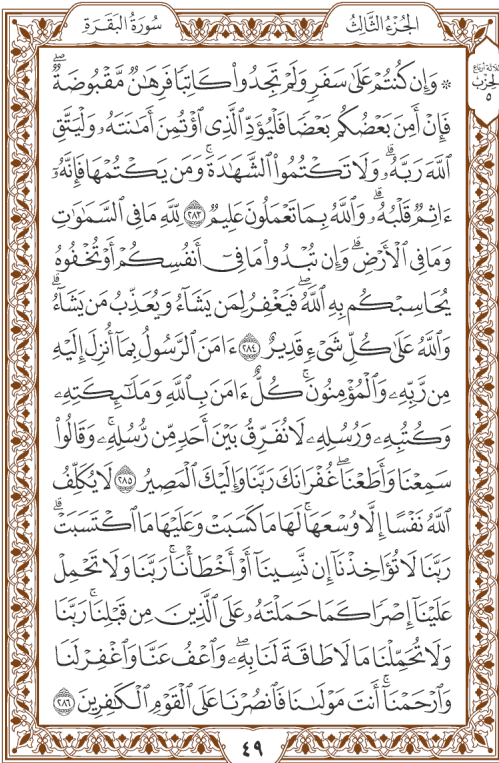 سُورَةُ البَقَرَةِ
الجُزْءُ الثَّالِثُ
ثلاثة أرباع
الحِزْب
٥
۞ وَإِن كُنتُمْ عَلَىٰ سَفَرٍ وَلَمْ تَجِدُوا۟ كَاتِبًا فَرِهَٰنٌ مَّقْبُوضَةٌ ۖ
فَإِنْ أَمِنَ بَعْضُكُم بَعْضًا فَلْيُؤَدِّ ٱلَّذِى ٱؤْتُمِنَ أَمَٰنَتَهُۥ وَلْيَتَّقِ
ٱللَّهَ رَبَّهُۥ ۗ وَلَا تَكْتُمُوا۟ ٱلشَّهَٰدَةَ ۚ وَمَن يَكْتُمْهَا فَإِنَّهُۥٓ
ءَاثِمٌ قَلْبُهُۥ ۗ وَٱللَّهُ بِمَا تَعْمَلُونَ عَلِيمٌ ٢٨٣ لِّلَّهِ مَا فِى ٱلسَّمَٰوَٰتِ
وَمَا فِى ٱلْأَرْضِ ۗ وَإِن تُبْدُوا۟ مَا فِىٓ أَنفُسِكُمْ أَوْ تُخْفُوهُ
يُحَاسِبْكُم بِهِ ٱللَّهُ ۖ فَيَغْفِرُ لِمَن يَشَآءُ وَيُعَذِّبُ مَن يَشَآءُ ۗ
وَٱللَّهُ عَلَىٰ كُلِّ شَىْءٍ قَدِيرٌ ٢٨٤ ءَامَنَ ٱلرَّسُولُ بِمَآ أُنزِلَ إِلَيْهِ
مِن رَّبِّهِۦ وَٱلْمُؤْمِنُونَ ۚ كُلٌّ ءَامَنَ بِٱللَّهِ وَمَلَٰٓئِكَتِهِۦ
وَكُتُبِهِۦ وَرُسُلِهِۦ لَا نُفَرِّقُ بَيْنَ أَحَدٍ مِّن رُّسُلِهِۦ ۚ وَقَالُوا۟
سَمِعْنَا وَأَطَعْنَا ۖ غُفْرَانَكَ رَبَّنَا وَإِلَيْكَ ٱلْمَصِيرُ ٢٨٥ لَا يُكَلِّفُ
ٱللَّهُ نَفْسًا إِلَّا وُسْعَهَا ۚ لَهَا مَا كَسَبَتْ وَعَلَيْهَا مَا ٱكْتَسَبَتْ ۗ
رَبَّنَا لَا تُؤَاخِذْنَآ إِن نَّسِينَآ أَوْ أَخْطَأْنَا ۚ رَبَّنَا وَلَا تَحْمِلْ
عَلَيْنَآ إِصْرًا كَمَا حَمَلْتَهُۥ عَلَى ٱلَّذِينَ مِن قَبْلِنَا ۚ رَبَّنَا
وَلَا تُحَمِّلْنَا مَا لَا طَاقَةَ لَنَا بِهِۦ ۖ وَٱعْفُ عَنَّا وَٱغْفِرْ لَنَا
وَٱرْحَمْنَآ ۚ أَنتَ مَوْلَىٰنَا فَٱنصُرْنَا عَلَى ٱلْقَوْمِ ٱلْكَٰفِرِينَ ٢٨٦
٤٩